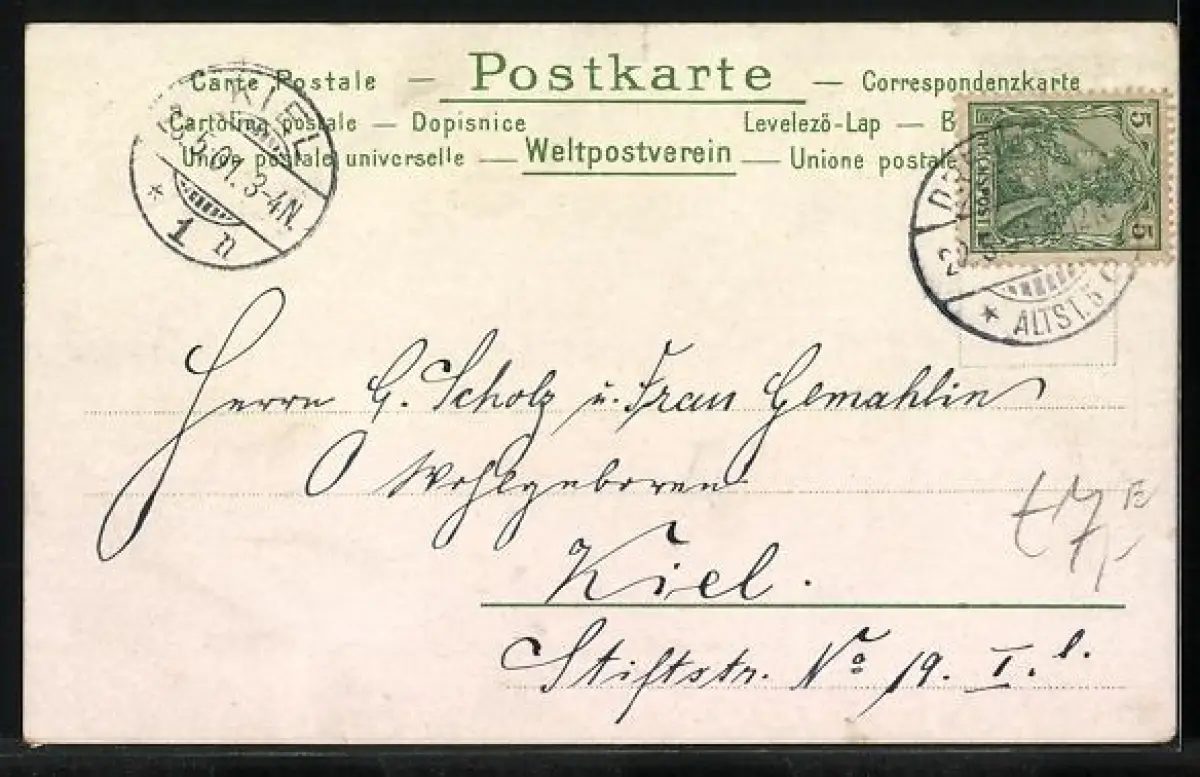 Carte Postale — Postkarte — Correspondenzkarte
Cartolina postale — Dopisnice Levelező-Lap — B
Union postale universelle — Weltpostverein — Unione postale
KIEL
5.01. 3-4N.
* 1 n
5 REICHSPOST 5
* ALTST. 5
Herrn G. Scholz u. Frau Gemahlin
Wohlgeboren
Kiel.
Stiftstr. No 19. I. l.